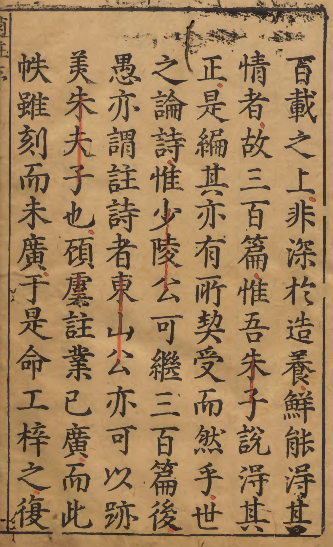 百載之上非深於造養鮮能得其
情者故三百篇惟吾朱子說得其
正是編其亦有所契受而然乎世
之論詩惟少陵公可繼三百篇後
愚亦謂註詩者東山公亦可以跡
美朱夫子也碩羣註業已廣而此
帙雖刻而未廣于是命工梓之復